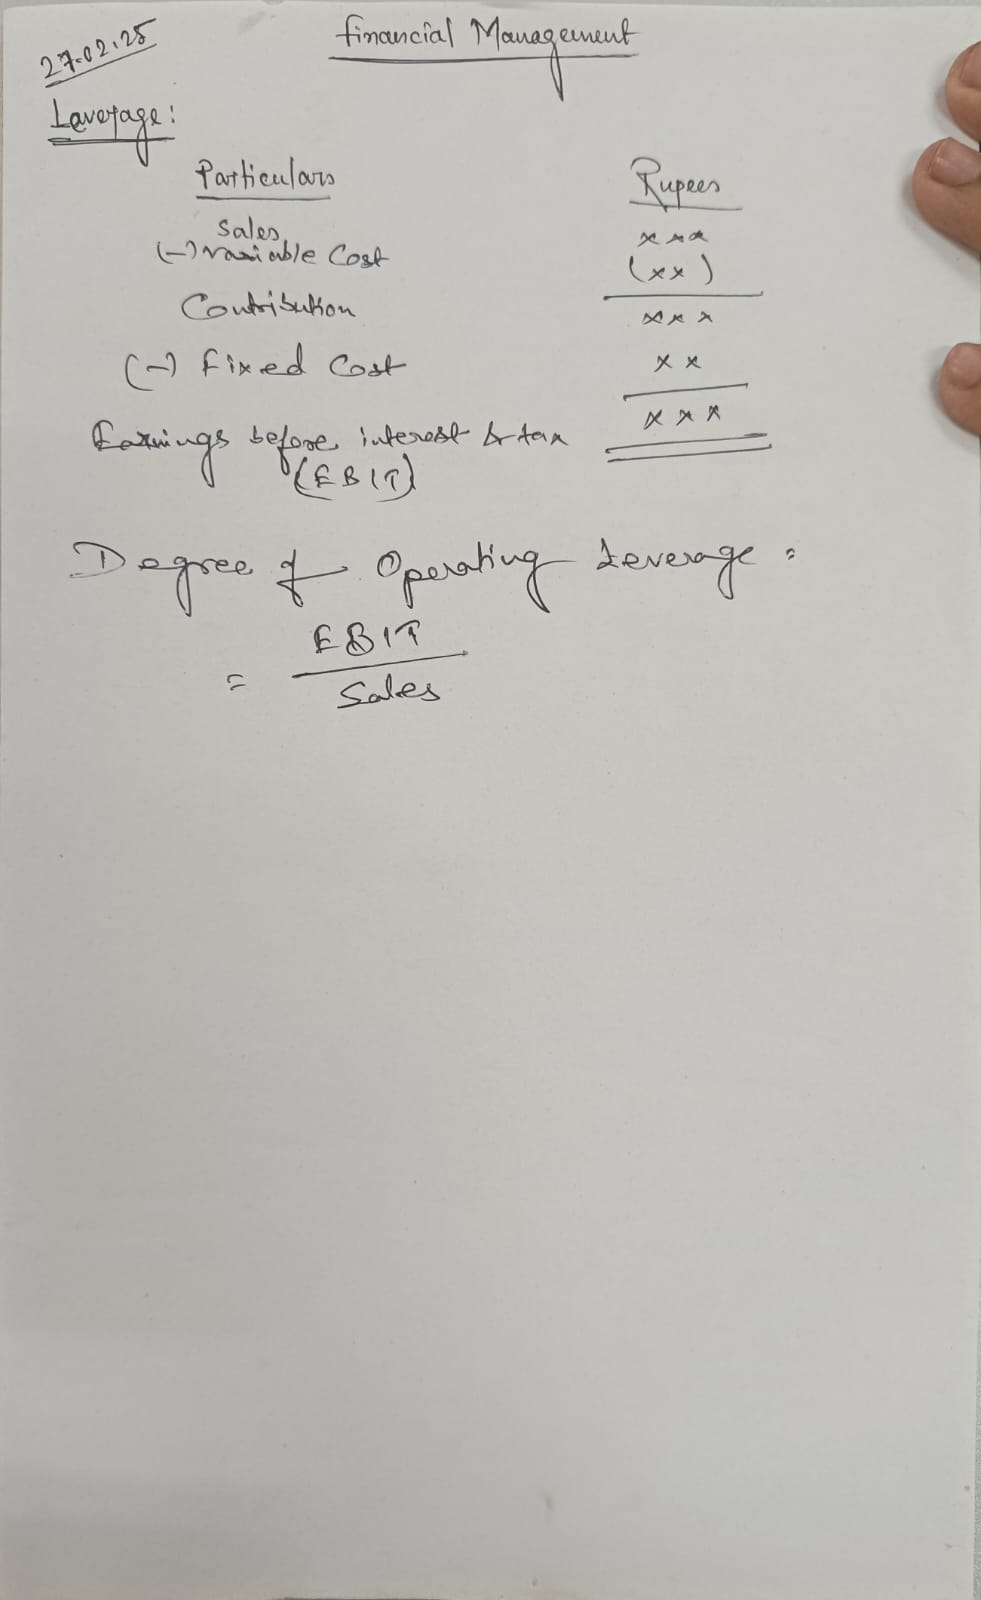 27.02.25
Financial Management
Laverage:
Particulars Rupees
Sales xxx
(-) variable Cost (xx)
Contribution xxx
(-) Fixed Cost xx
Earnings before interest & tax xxx
(EBIT)
Degree of Operating Leverage =
= EBIT
Sales